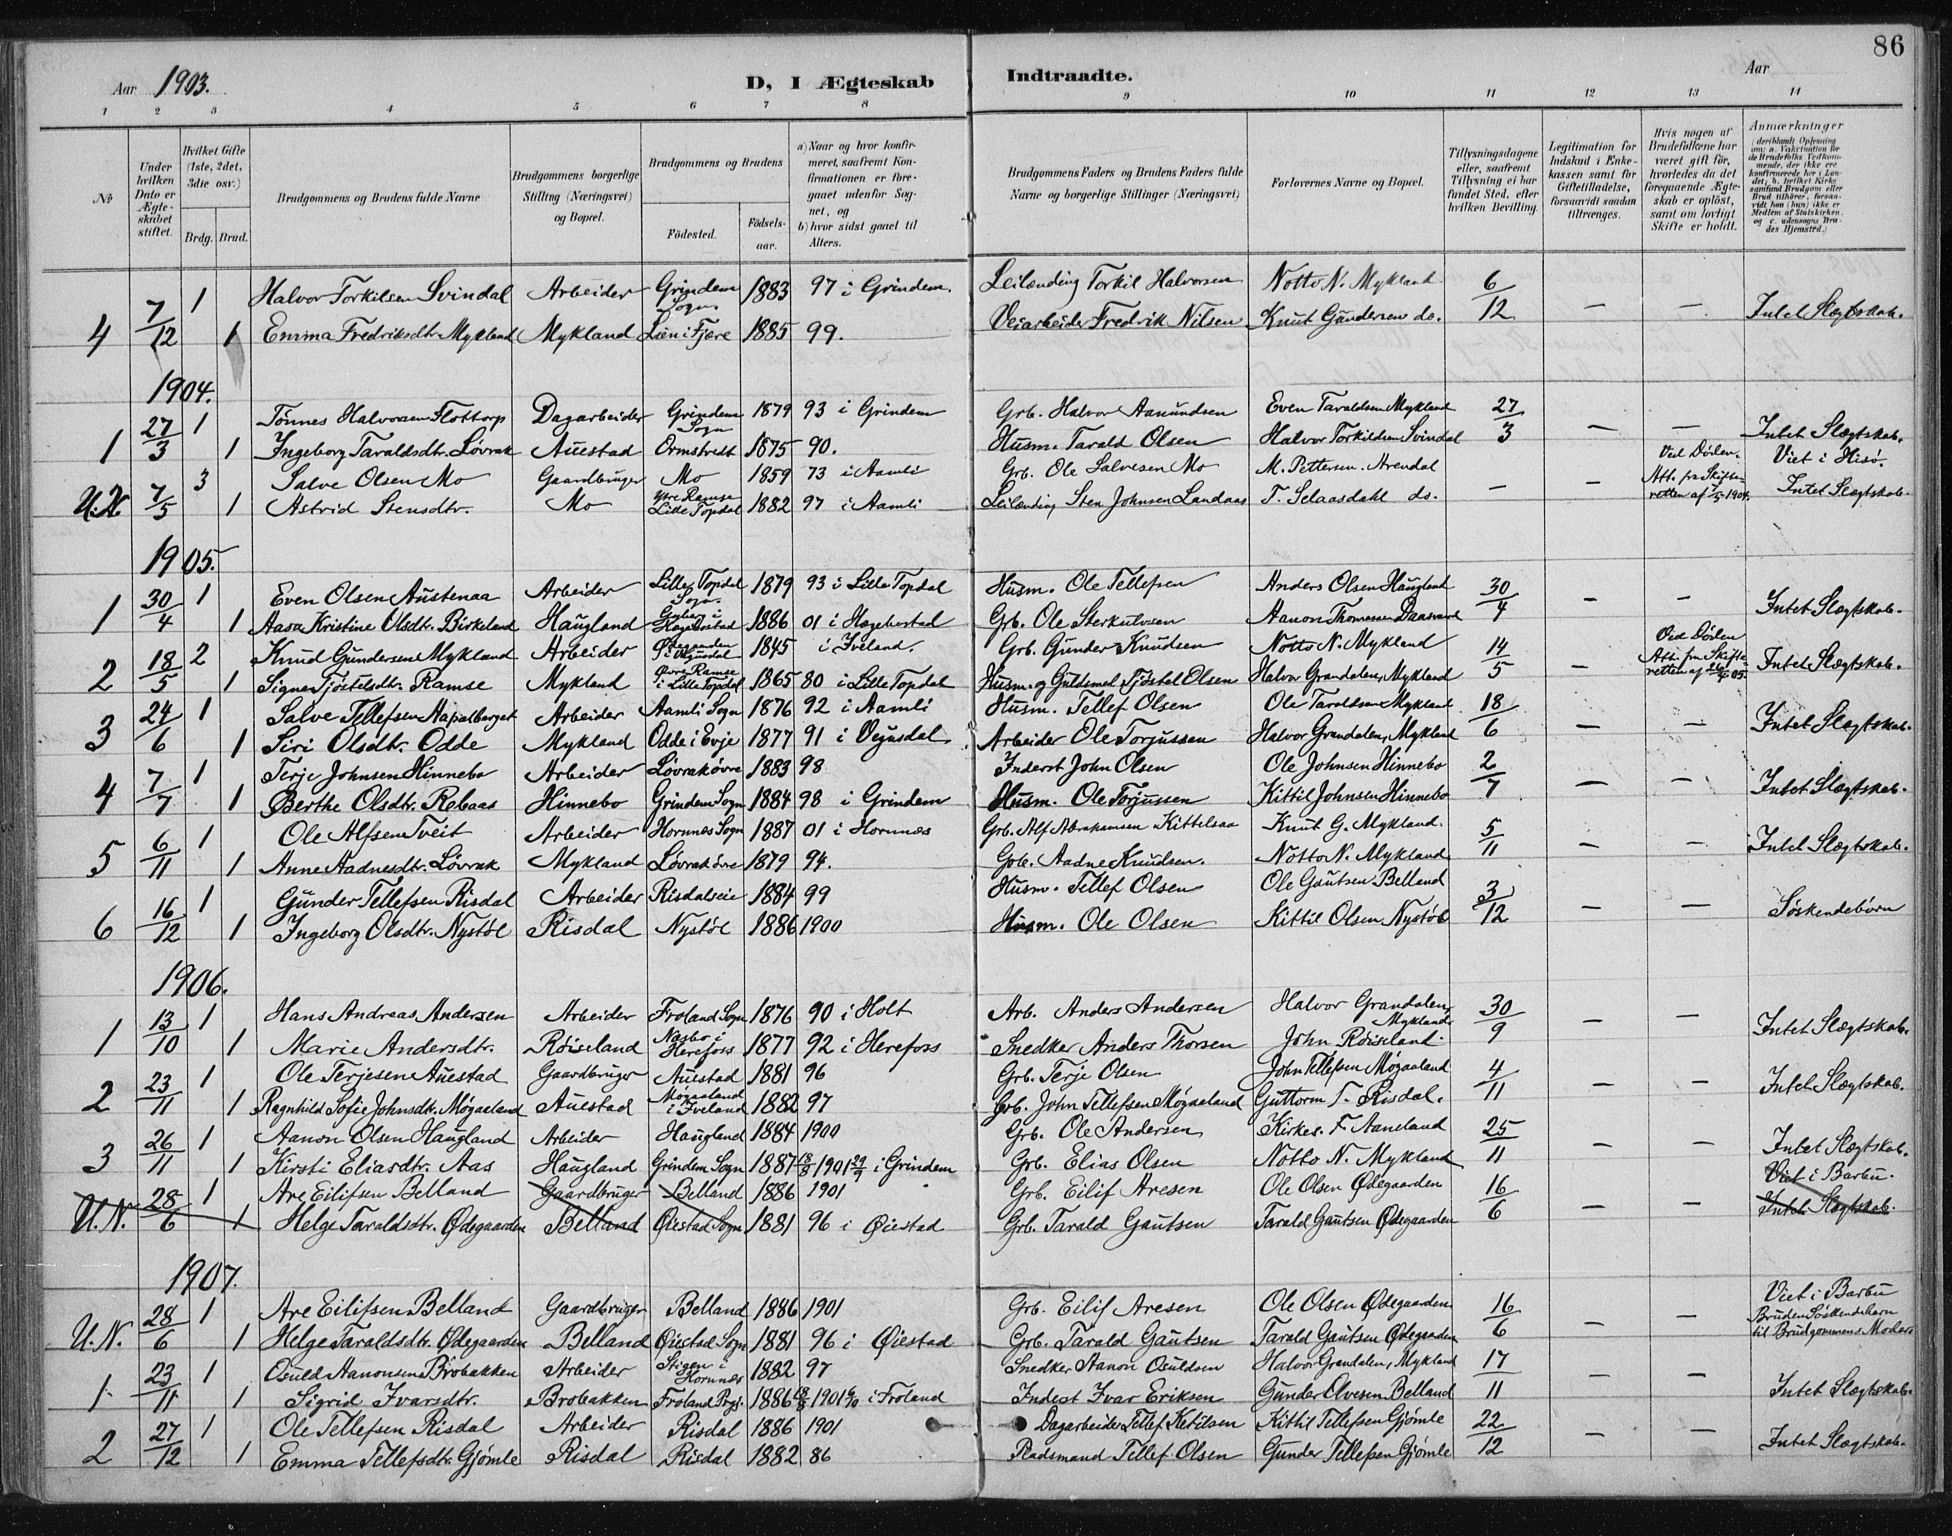 86
Aar 1903.
D, I Ægteskab Indtraadte.
Aar
1 2 3 4 5 6 7 8 9 10 11 12 13 14
№
Under hvilken Dato er Ægteskabet stiftet.
Hvilket Gifte (1ste, 2det, 3die osv.)
Brdg. Brud.
Brudgommens og Brudens fulde Navne
Brudgommens borgerlige Stilling (Næringsvei) og Bopæl.
Brudgommens og Brudens
Fødested. Fødselsaar.
a) Naar og hvor konfirmeret, saafremt Konfirmationen er foregaaet udenfor Sognet, og
b) hvor sidst gaaet til Alters.
Brudgommens Faders og Brudens Faders fulde Navne og borgerlige Stillinger (Næringsvei)
Forlovernes Navne og Bopæl.
Tillysningsdagene eller, saafremt Tillysning ei har fundet Sted, efter hvilken Bevilling.
Legitimation for Indskud i Enkekassen samt for Giftetilladelse, forsaavidt saadan tiltrænges.
Hvis nogen af Brudefolkene har været gift før, hvorledes da det foregaaende Ægteskab er opløst, samt om lovligt Skifte er holdt.
Anmærkninger (deriblandt Oplysning om: a. Vakcination for de Brudefolks Vedkommende, der ikke ere konfirmerede her i Landet; b. hvilket Kirkesamfund Brudgom eller Brud tilhører, forsaavidt han (hun) ikke er Medlem af Statskirken, og c. udensogns Brudes Hjemsted.)
7/12 1 Halvor Torkilsen Svindal Arbeider Grindem Sogn 1883 97 i Grindem. Leilænding Torkil Halvorsen Notto N. Mykland 6/12
4 1 Emma Fredriksdtr. Mykland Mykland Lien i Fjære 1885 99. Veiarbeider Fredrik Nilsen Knut Gundersen do. — — Intet Slægtskab.
1904.
27/3 1 Tønnes Halvorsen Flottorp Dagarbeider Grindem Sogn 1879 93 i Grindem Grb. Halvor Aanundsen Even Taraldsen Mykland 27/3
1 1 Ingeborg Taraldsdtr. Løvrak Auestad Ormstvedt 1875 90. Husm. Tarald Olsen Halvor Torkildsen Svindal — — Intet Slægtskab.
7/5 3 Salve Olsen Mo Gaardbruger Mo 1859 73 i Aamli Grb. Ole Salvesen Mo M. Pettersen. Arendal Ved Døden. Viet i Hisø.
U.N. 1 Astrid Stensdtr. Mo Ytre Ramse Lille Topdal 1882 97 i Aamli Leilænding Sten Johnsen Landaas T. Selaasdahl do. — — Att. fra Skifteretten af 7/5 1904. Intet Slægtskab.
1905.
30/4 1 Even Olsen Austenaa Arbeider Lille Topdal Sogn. 1879 93 i Lille Topdal Husm. Ole Tellefsen Anders Olsen Haugland 30/4
1 1 Aasa Kristine Olsdtr. Birkeland Haugland i Hægebostad 1886 01 i Hægebostad Grb. Ole Sterkulvsen Aanon Thomassen — — Intet Slægtskab.
18/5 2 Knud Gundersen Mykland Arbeider 1845 i Iveland. Grb. Gunder Knudsen Notto N. Mykland 14/5 Ved Døden
2 1 Signe Tjøstelsdtr. Ramse Mykland Øvre Ramse i Lille Topdal 1865 80 i Lille Topdal Husm. og Guldsmed Tjøstel Olsen Halvor Grandalen, Mykland — Att. fra Skifteretten af 05. Intet Slægtskab.
24/6 1 Salve Tellefsen Hapalberget Arbeider Aamli Sogn 1876 92 i Aamli Husm. Tellef Olsen Ole Taraldsen Mykland 18/6
3 1 Siri Olsdtr. Odde Mykland Odde i Evje 1877 91 i Vegusdal Arbeider Ole Torjussen Halvor Grandalen, Mykland — — Intet Slægtskab.
7/7 1 Terje Johnsen Hinnebo Arbeider Løvrak øvre 1883 98 Inderst John Olsen Ole Johnsen Hinnebo 2/7
4 1 Berthe Olsdtr. Rebaas Hinnebo Grindem Sogn 1884 98 i Grindem Husm. Ole Torjussen Kittil Johnsen Hinnebo — — Intet Slægtskab.
6/11 1 Ole Alfsen Tveit Arbeider Hornnes Sogn 1887 01 i Hornnes Grb. Alf Abrahamsen Kittelsaa Knut G. Mykland. 5/11
5 1 Anne Aadnesdtr. Løvrak Mykland Løvrak øvre 1879 94. Grb. Aadne Knudsen. Notto N. Mykland — — Intet Slægtskab.
16/12 1 Gunder Tellefsen Risdal Arbeider Risdalseie 1884 99 Husm. Tellef Olsen Ole Gautsen Belland 3/12
6 1 Ingeborg Olsdtr. Nystøl Risdal Nystøl 1886 1900 Husm. Ole Olsen Kittil Olsen Nystøl — — Søskendebørn
1906.
13/10 1 Hans Andreas Andersen Arbeider Froland Sogn 1876 90 i Holt Arb. Anders Andersen Halvor Grandalen, Mykland 30/9
1 1 Marie Andersdtr. Røiseland Nasbø i Herefoss 1877 92 i Herefoss Snedker Anders Thorsen John Røiseland. — — Intet Slægtskab.
23/11 1 Ole Terjesen Auestad Gaardbruger Auestad 1881 96 Grb. Terje Olsen John Tellefsen Møgaaland 4/11
2 1 Ragnhild Sofie Johnsdtr. Møgaaland Auestad Møgaaland i Iveland 1882 97 Grb. John Tellefsen Møgaaland Guttorm T. Risdal. — — Intet Slægtskab.
26/11 1 Aanon Olsen Haugland Arbeider Haugland 1884 1900 Grb. Ole Andersen Kirkes. F. Aaneland 25/11
3 1 Kirsti Eliasdtr. Aas Haugland Grindem Sogn 1887 18/8 1901 29/9 i Grindem Grb. Elias Olsen Notto N. Mykland — — Intet Slægtskab.
28/6 1 Are Eilifsen Belland Gaardbruger Belland 1886 1901 Grb. Eilif Aresen Ole Olsen Ødegaarden 16/6 Viet i Barbu.
U.N. 1 Helge Taraldsdtr. Ødegaarden Belland Øiestad Sogn 1881 96 i Øiestad Grb. Tarald Gautsen Tarald Gautsen Ødegaarden — — Intet Slægtskab.
1907.
28/6 1 Are Eilifsen Belland Gaardbruger Belland 1886 1901 Grb. Eilif Aresen Ole Olsen Ødegaarden 16/6 Viet i Barbu
U.N. 1 Helge Taraldsdtr. Ødegaarden Belland Øiestad Sogn 1881 96 i Øiestad Grb. Tarald Gautsen Tarald Gautsen Ødegaarden — — Bruden Søskendebarn til Brudgommens Moder
23/11 1 Osuld Aanonsen Brobakken Arbeider Stigen i Hornnes 1882 97 Snedker Aanon Osuldsen Halvor Grandalen, Mykland 17/11
1 1 Sigrid Ivarsdtr. Brobakken Froland Prgj. 1886 1901 i Froland Inderst Ivar Eriksen Gunder Olvesen Belland — — Intet Slægtskab.
27/12 1 Ole Tellefsen Risdal Arbeider Risdal 1886 1901 Dagarbeider Tellef Ketilsen Kittil Tellefsen Gjømle 22/12
2 1 Emma Tellefsdtr. Gjømle Risdal Risdal 1882 86 Pladsmand Tellef Olsen Gunder Tellefsen Gjømle — — Intet Slægtskab.